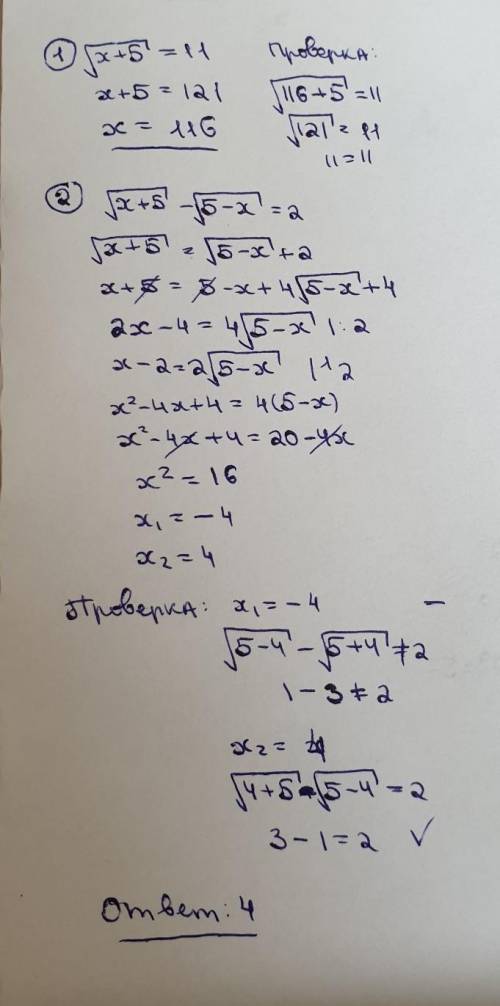 ① √(x+5) = 11
x+5 = 121
x = 116
Проверка:
√(116+5) = 11
√121 = 11
11 = 11
② √(x+5) - √(5-x) = 2
√(x+5) = √(5-x) + 2
x+5 = 5-x+4√(5-x)+4
2x-4 = 4√(5-x) |:2
x-2 = 2√(5-x) |↑2
x²-4x+4 = 4(5-x)
x²-4x+4 = 20-4x
x² = 16
x₁ = -4
x₂ = 4
Проверка: x₁ = -4 –
√(5-4) - √(5+4) ≠ 2
1-3 ≠ 2
x₂ = 4
√(4+5) - √(5-4) = 2
3-1 = 2 ✓
Ответ: 4